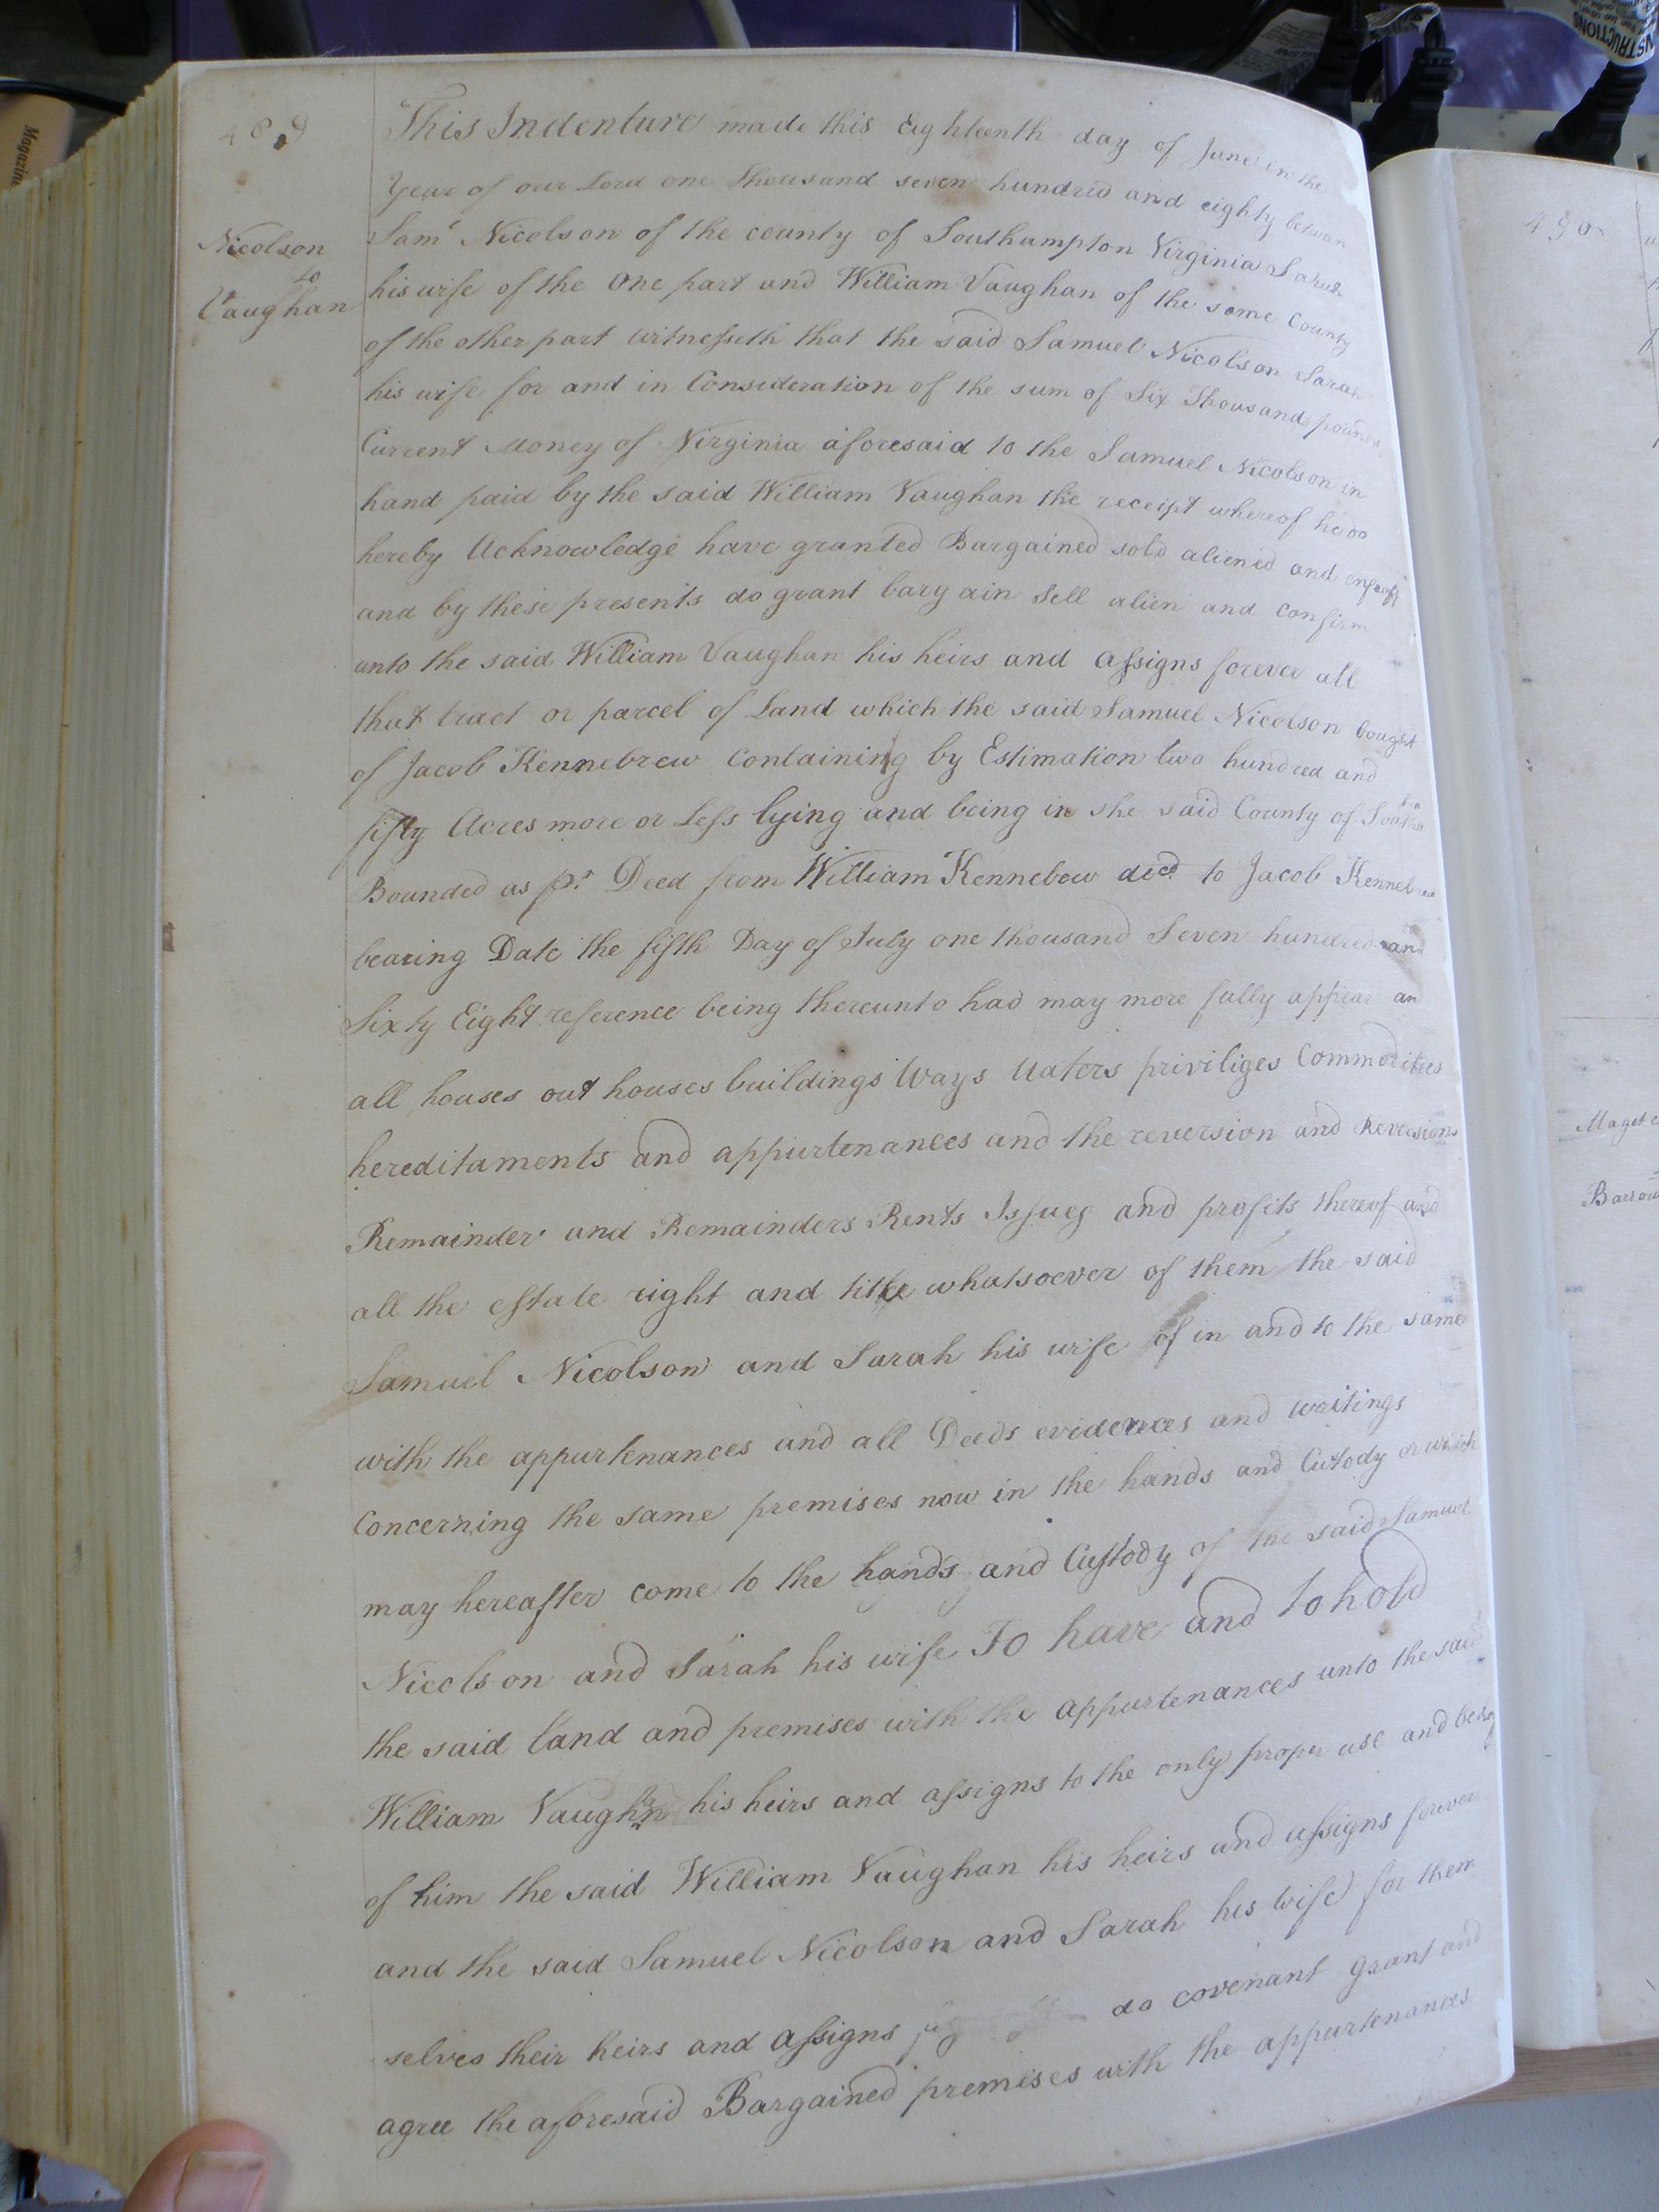 489
This Indenture made this Eighteenth day of June in the
Year of our Lord one thousand seven hundred and eighty between
Nicolson
to
Vaughan
Saml Nicolson of the county of Southampton Virginia Sarah
his wife of the One part and William Vaughan of the same County
of the other part Witnesseth that the said Samuel Nicolson Sarah
his wife for and in Consideration of the sum of Six Thousand pounds
Current Money of Virginia aforesaid to the Samuel Nicolson in
hand paid by the said William Vaughan the receipt whereof he do
hereby Acknowledge have granted Bargained sold aliened and
and by these presents do grant bargain sell alien and confirm
unto the said William Vaughan his heirs and assigns forever all
that tract or parcel of Land which the said Samuel Nicolson bought
of Jacob Kennebrew Containing by Estimation two hundred and
fifty Acres more or Less lying and being in the said County of
Bounded as pr Deed from William Kennebew decd to Jacob Kennebrew
bearing Date the fifth Day of July one thousand Seven hundred and
Sixty Eight reference being thereunto had may more fully appear an
all houses out houses buildings Ways Waters priviliges Commodities
hereditaments and appurtenances and the reversion and Reversions
Remainder and Remainders Rents Issues and profits thereof and
all the estate right and title whatsoever of them the said
Samuel Nicolson and Sarah his wife of in and to the same
with the appurtenances and all Deeds evidences and writings
Concerning the same premises now in the hands and Cutody or which
may hereafter come to the hands and Custody of the said Samuel
Nicolson and Sarah his wife To have and to hold
the said land and premises with the appurtenances unto the said
William Vaughan his heirs and assigns to the only proper use and behoof
of him the said William Vaughan his heirs and assigns forever
and the said Samuel Nicolson and Sarah his wife for them
selves their heirs and assigns do covenant grant and
agree the aforesaid Bargained premises with the appurtenances
490
Barrow
Magazine
INSTRUCTIONS